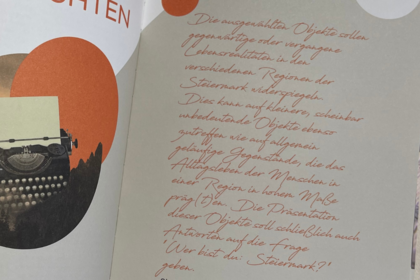 CHTEN
Die ausgewählten Objekte sollen
gegenwärtige oder vergangene
Lebensrealitäten in den
verschiedenen Regionen der
Steiermark widerspiegeln.
Dies kann auf kleinere, scheinbar
unbedeutende Objekte ebenso
zutreffen wie auf allgemein
geläufige Gegenstände, die das
Alltagsleben der Menschen in
einer Region in hohem Maße
präg(t)en. Die Präsentation
dieser Objekte soll schließlich auch
Antworten auf die Frage
'Wer bist du: Steiermark?'
geben.